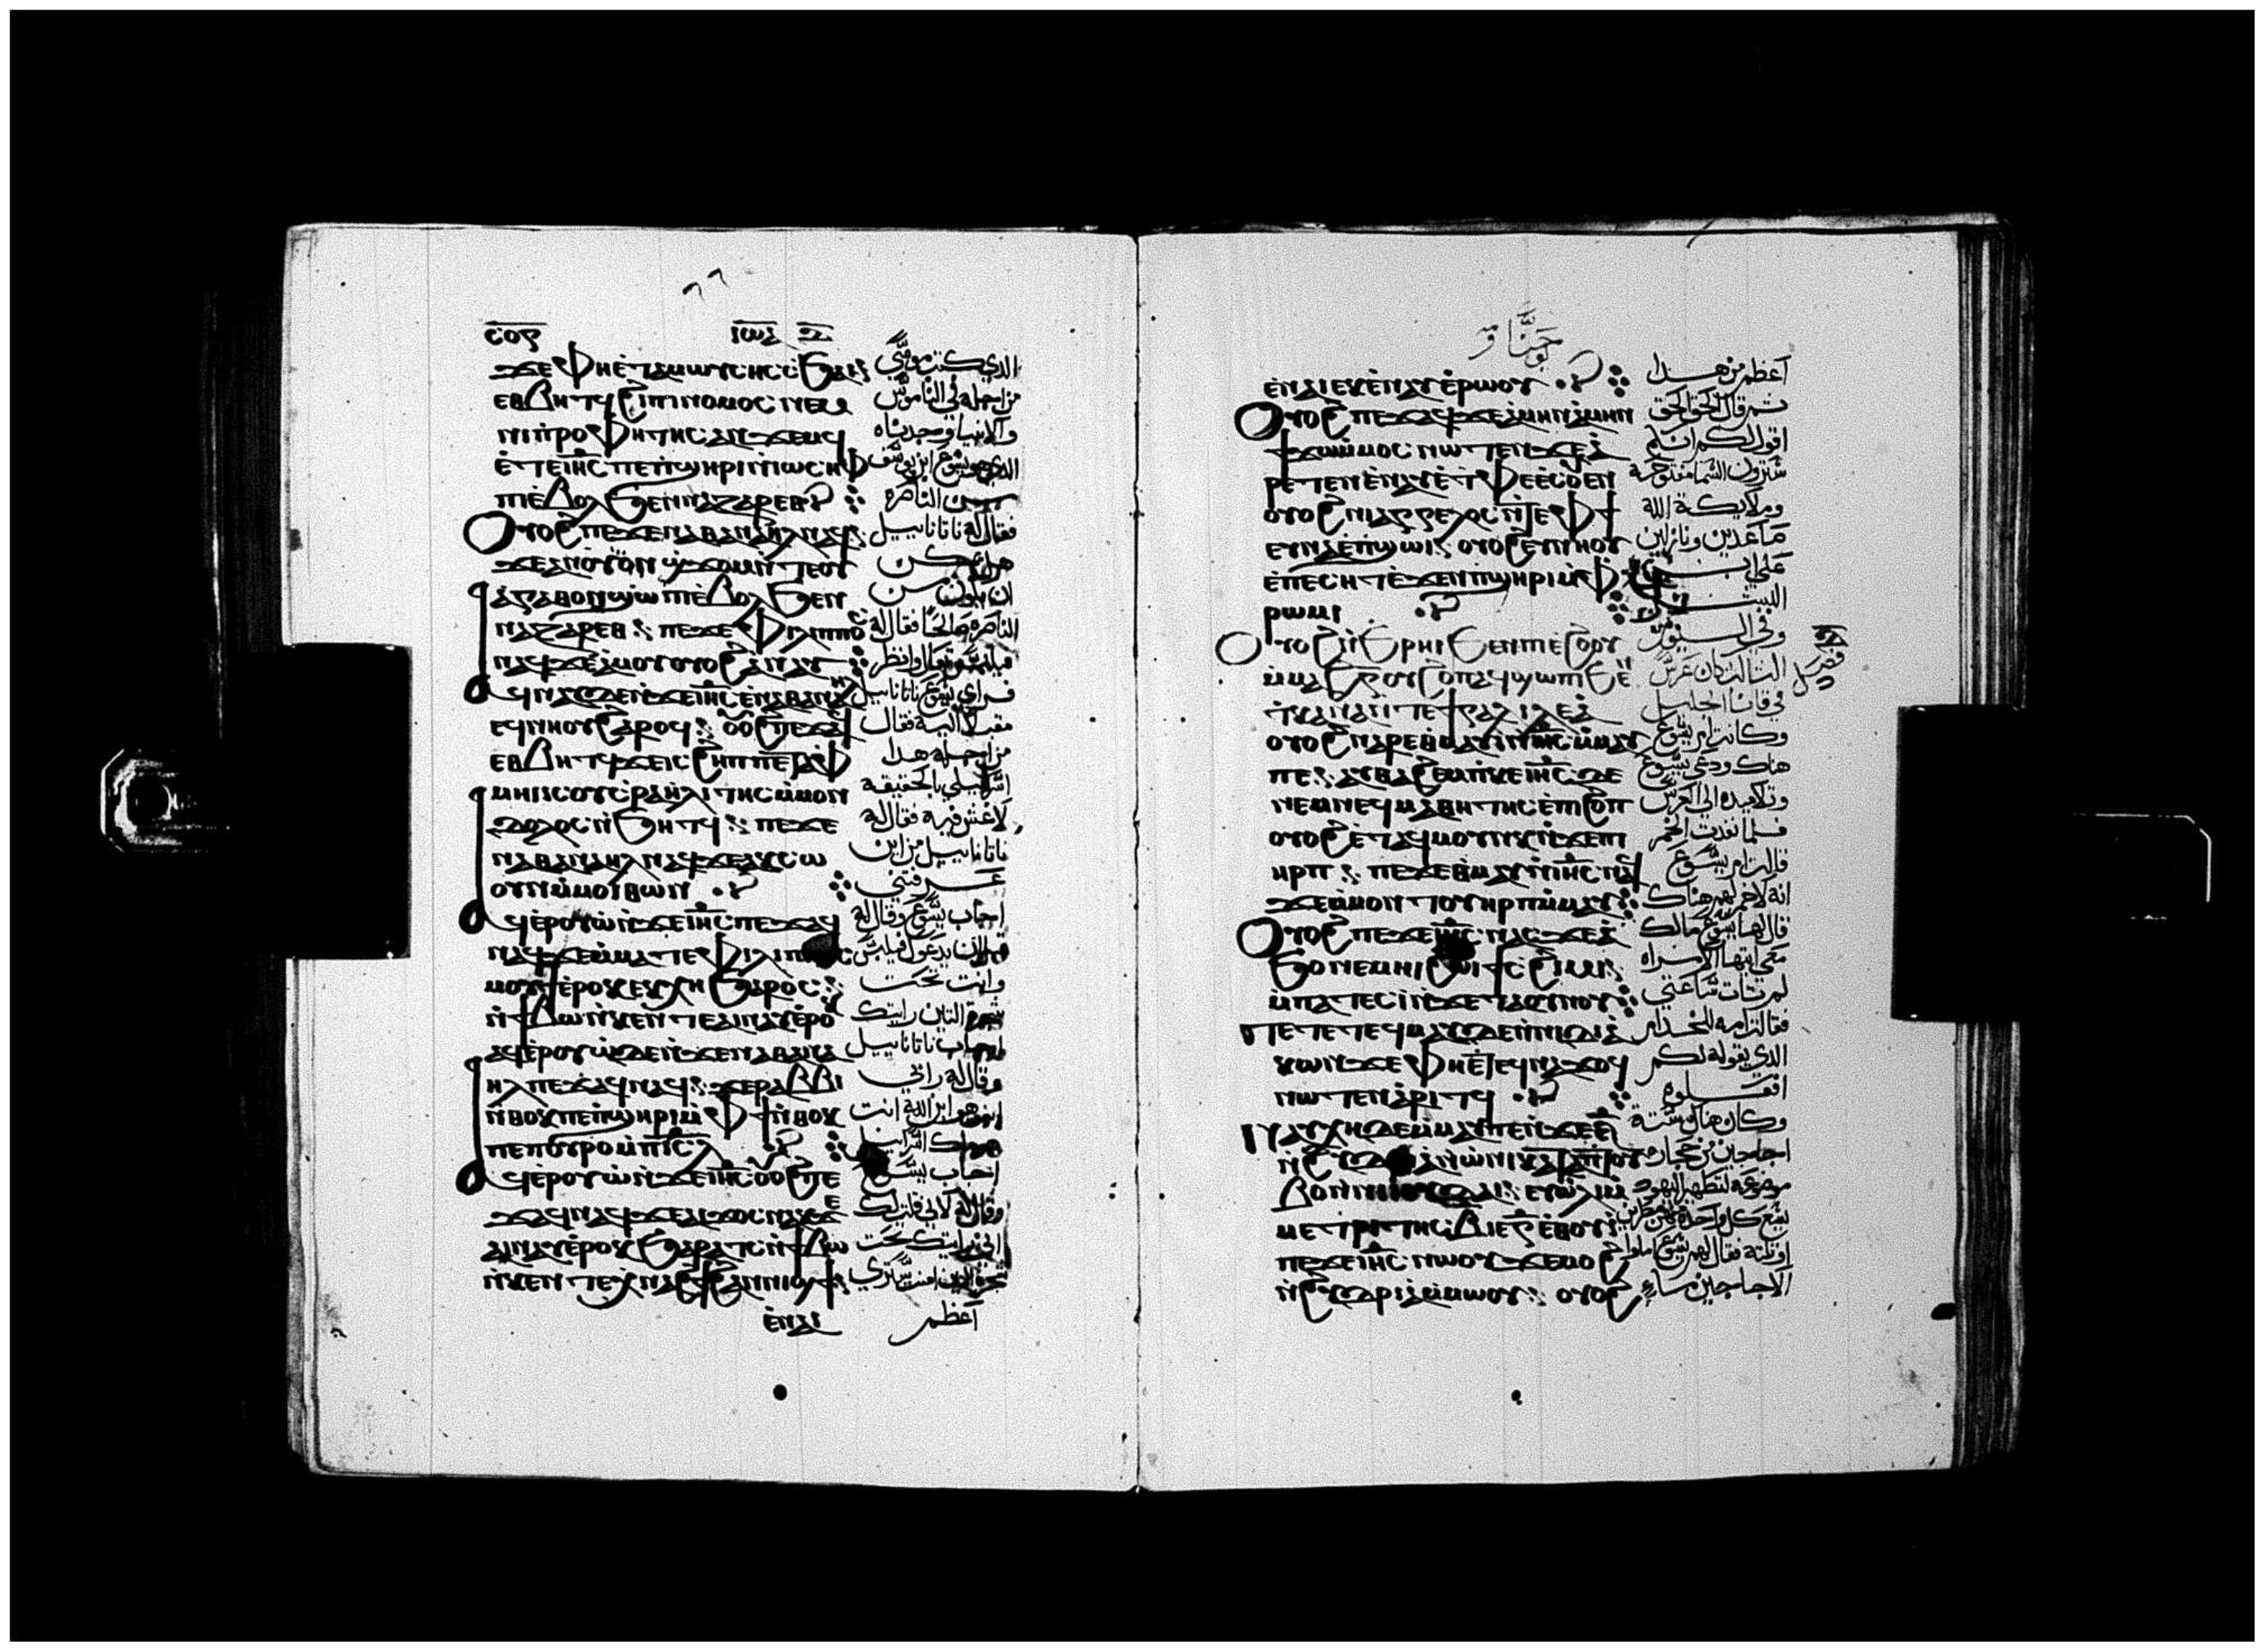 ⲥⲟⲋ ⲓⲱⲁ
ϫⲉ ⲫⲏⲉⲧⲁⲙⲱⲩⲥⲏⲥ ⲥϧⲁⲓ
ⲉⲑⲃⲏⲧϥ ϩⲓ ⲡⲓⲛⲟⲙⲟⲥ ⲛⲉⲙ
ⲛⲓⲡⲣⲟⲫⲏⲧⲏⲥ ⲁⲛϫⲉⲙϥ
ⲉⲧⲉ ⲓⲏⲥ ⲡⲉ ⲡϣⲏⲣⲓ ⲛⲓⲱⲥⲏⲫ
ⲡⲓⲉⲃⲟⲗ ϧⲉⲛ ⲛⲁⲍⲁⲣⲉⲑ
ⲟⲩⲟϩ ⲡⲉϫⲉ ⲛⲁⲑⲁⲛⲁⲏⲗ ⲛⲁϥ
ϫⲉ ⲁⲛ ⲟⲩⲟⲛ ϣϫⲟⲙ ⲛⲧⲉ ⲟⲩ
ⲁⲅⲁⲑⲟⲛ ϣⲱⲡⲓ ⲉⲃⲟⲗ ϧⲉⲛ
ⲛⲁⲍⲁⲣⲉⲑ ⲡⲉϫⲉ ⲫⲓⲗⲓⲡⲡⲟⲥ
ⲛⲁϥ ϫⲉ ⲁⲙⲟⲩ ⲟⲩⲟϩ ⲁⲛⲁⲩ
ⲁϥⲛⲁⲩ ⲇⲉ ⲛϫⲉ ⲓⲏⲥ ⲉⲛⲁⲑⲁⲛⲁⲏⲗ
ⲉϥⲛⲏⲟⲩ ϩⲁⲣⲟϥ ⲟⲩⲟϩ ⲡⲉϫⲁϥ
ⲉⲑⲃⲏⲧϥ ϫⲉ ⲓⲥ ϩⲏⲡⲡⲉ ⲧⲁⲫ
ⲙⲏⲓ ⲡⲓⲥⲟⲩⲥⲣⲁⲏⲗⲓⲧⲏⲥ ⲙⲙⲟⲛ
ⲇⲟⲗⲟⲥ ⲛϧⲏⲧϥ ⲡⲉϫⲉ
ⲛⲁⲑⲁⲛⲁⲏⲗ ⲛⲁϥ ϫⲉ ⲁⲕⲥⲱ
ⲟⲩⲛ ⲙⲙⲟⲓ ⲑⲱⲛ
ⲁϥⲉⲣⲟⲩⲱ ⲛϫⲉ ⲓⲏⲥ ⲡⲉϫⲁϥ
ⲛⲁϥ ϫⲉ ⲙⲡⲁⲧⲉ ⲫⲓⲗⲓⲡⲡⲟⲥ
ⲙⲟⲩϯ ⲉⲣⲟⲕ ⲉⲕⲭⲏ ϧⲁⲣⲟⲥ
ⲛϯⲃⲱ ⲛⲕⲉⲛⲧⲉ ⲁⲓⲛⲁⲩ ⲉⲣⲟⲕ
ⲁϥⲉⲣⲟⲩⲱ ⲇⲉ ⲛϫⲉ ⲛⲁⲑⲁⲛⲁ
ⲏⲗ ⲡⲉϫⲁϥ ⲛⲁϥ ϫⲉ ⲣⲁⲃⲃⲓ
ⲛⲑⲟⲕ ⲡⲉ ⲡϣⲏⲣⲓ ⲙⲫϯ ⲛⲑⲟⲕ
ⲡⲉ ⲡⲟⲩⲣⲟ ⲙⲡⲓⲥⲗ
ⲁϥⲉⲣⲟⲩⲱ ⲛϫⲉ ⲓⲏⲥ ⲟⲩⲟϩ ⲡⲉ
ϫⲁϥ ⲛⲁϥ ϫⲉ ⲁⲓϫⲟⲥ ⲛⲁⲕ ϫⲉ
ⲁⲓⲛⲁⲩ ⲉⲣⲟⲕ ϧⲁⲣⲁⲧⲥ ⲛϯⲃⲱ
ⲛⲕⲉⲛⲧⲉ ⲭⲛⲁϩϯ ϩⲁⲛⲛⲓϣϯ
ⲉⲛⲁⲓ
الذي كتب موسى
من اجله في الناموس
والانبيا وجدناه
الذي هو يسوع ابن يوسف
من الناصره
فقال له ناتاناييل
هل يمكن
ان يكون من
الناصره صالحا فقال له
فيلبس تعال وانظر
فراي يسوع ناتاناييل
مقبلا اليه فقال
من اجله هدا
اسراييلي بالحقيقه
لا غش فيه فقال له
ناتاناييل من اين
عرفتني
اجاب يسوع وقال له
قبل ان يدعوك فيلبس
وانت تحت
شجرة التين رايتك
اجاب ناتاناييل
وقال له رابي
انت هو ابن الله انت
هو ملك اسراييل
اجاب يسوع
وقال له لاني قلت لك
اني رايتك تحت
شجرة التين امنت سترى
اعظم
يوحنا
ⲉⲛⲁⲓ ⲉⲕⲉⲛⲁⲩ ⲉⲣⲱⲟⲩ
ⲟⲩⲟϩ ⲡⲉϫⲁϥ ϫⲉ ⲁⲙⲏⲛ ⲁⲙⲏⲛ
ϯϫⲱ ⲙⲙⲟⲥ ⲛⲱⲧⲉⲛ ϫⲉ ⲁ
ⲣⲉⲧⲉⲛⲉⲛⲁⲩ ⲉⲧⲫⲉ ⲉⲥⲟⲩⲏⲛ
ⲟⲩⲟϩ ⲛⲓⲁⲅⲅⲉⲗⲟⲥ ⲛⲧⲉ ⲫϯ
ⲉⲩⲛⲁ ⲉⲡϣⲱⲓ ⲟⲩⲟϩ ⲉⲩⲛⲏⲟⲩ
ⲉⲡⲉⲥⲏⲧ ⲉϫⲉⲛ ⲡϣⲏⲣⲓ ⲙⲫ
ⲣⲱⲙⲓ
ⲟⲩⲟϩ ⲛϩⲣⲏⲓ ϧⲉⲛ ⲡⲓⲉϩⲟⲟⲩ
ⲙⲙⲁϩⲅ ⲟⲩϩⲟⲡ ⲁϥϣⲱⲡⲓ ϧⲉⲛ
ⲧⲕⲁⲛⲁ ⲛⲧⲉ ϯⲅⲁⲗⲓⲗⲉⲁ
ⲟⲩⲟϩ ⲛⲁⲣⲉ ⲑⲙⲁⲩ ⲛⲓⲏⲥ ⲙⲙⲁⲩ
ⲡⲉ ⲁⲩⲑⲁϩⲉⲙ ⲡⲕⲉ ⲓⲏⲥ ⲇⲉ
ⲛⲉⲙ ⲛⲉϥⲙⲁⲑⲏⲧⲏⲥ ⲉⲡⲓϩⲟⲡ
ⲟⲩⲟϩ ⲉⲧⲁϥⲙⲟⲩⲛⲕ ⲛϫⲉ ⲡⲓ
ⲏⲣⲡ ⲡⲉϫⲉ ⲑⲙⲁⲩ ⲛⲓⲏⲥ ⲛⲁϥ
ϫⲉ ⲙⲙⲟⲛ ⲧⲟⲩ ⲏⲣⲡ ⲙⲙⲁⲩ
ⲟⲩⲟϩ ⲡⲉϫⲉ ⲓⲏⲥ ⲛⲁⲥ ϫⲉ ⲁ
ϧⲟ ⲛⲉⲙⲏⲓ ϩⲱⲓ ϯⲥϩⲓⲙⲓ
ⲙⲡⲁⲧⲉⲥⲓ ⲛϫⲉ ⲧⲁⲟⲩⲛⲟⲩ
ⲡⲉϫⲉ ⲧⲉϥⲙⲁⲩ ⲇⲉ ⲛⲛⲓⲇⲓⲁ
ⲕⲱⲛ ϫⲉ ⲫⲏⲉⲧⲉϥⲛⲁϫⲟϥ
ⲛⲱⲧⲉⲛ ⲁⲣⲓⲧϥ
ⲛⲁⲩⲭⲏ ⲇⲉ ⲙⲙⲁⲩ ⲡⲉ ⲛϫⲉ
ⲙⲉⲧⲣⲓⲧⲏⲥ ⲃ ⲓⲉ ⲅ ⲉⲫⲟⲩⲁⲓ
ⲡⲉϫⲉ ⲓⲏⲥ ⲛⲱⲟⲩ ϫⲉ ⲙⲟϩ
ⲛϩⲩⲇⲣⲓⲁ ⲙⲙⲱⲟⲩ ⲟⲩⲟϩ
اعظم من هدا
ثم قال الحق الحق
اقول لكم انكم
سترون السما مفتوحه
وملايكة الله
صاعدين ونازلين
على ابن
البشر
وفي اليوم
التالت كان عرس
في قانا الجليل
وكانت ام يسوع
هناك ودعي يسوع
وتلاميده الى العرس
فلما نفدت الخمر
قالت ام يسوع
انه لا خمر لهم هناك
قال لها يسوع مالك
معي ايتها الامراه
لم تات ساعتي
فقالت امه للخدام
الذي يقوله لكم
افعلوه
وكان هناك ستة
اجاجين من حجاره
موضوعه لتطهير اليهود
يسع كل واحد مطرين
او تلته فقال لهم يسوع املوا
الاجاجين ماء
فصل